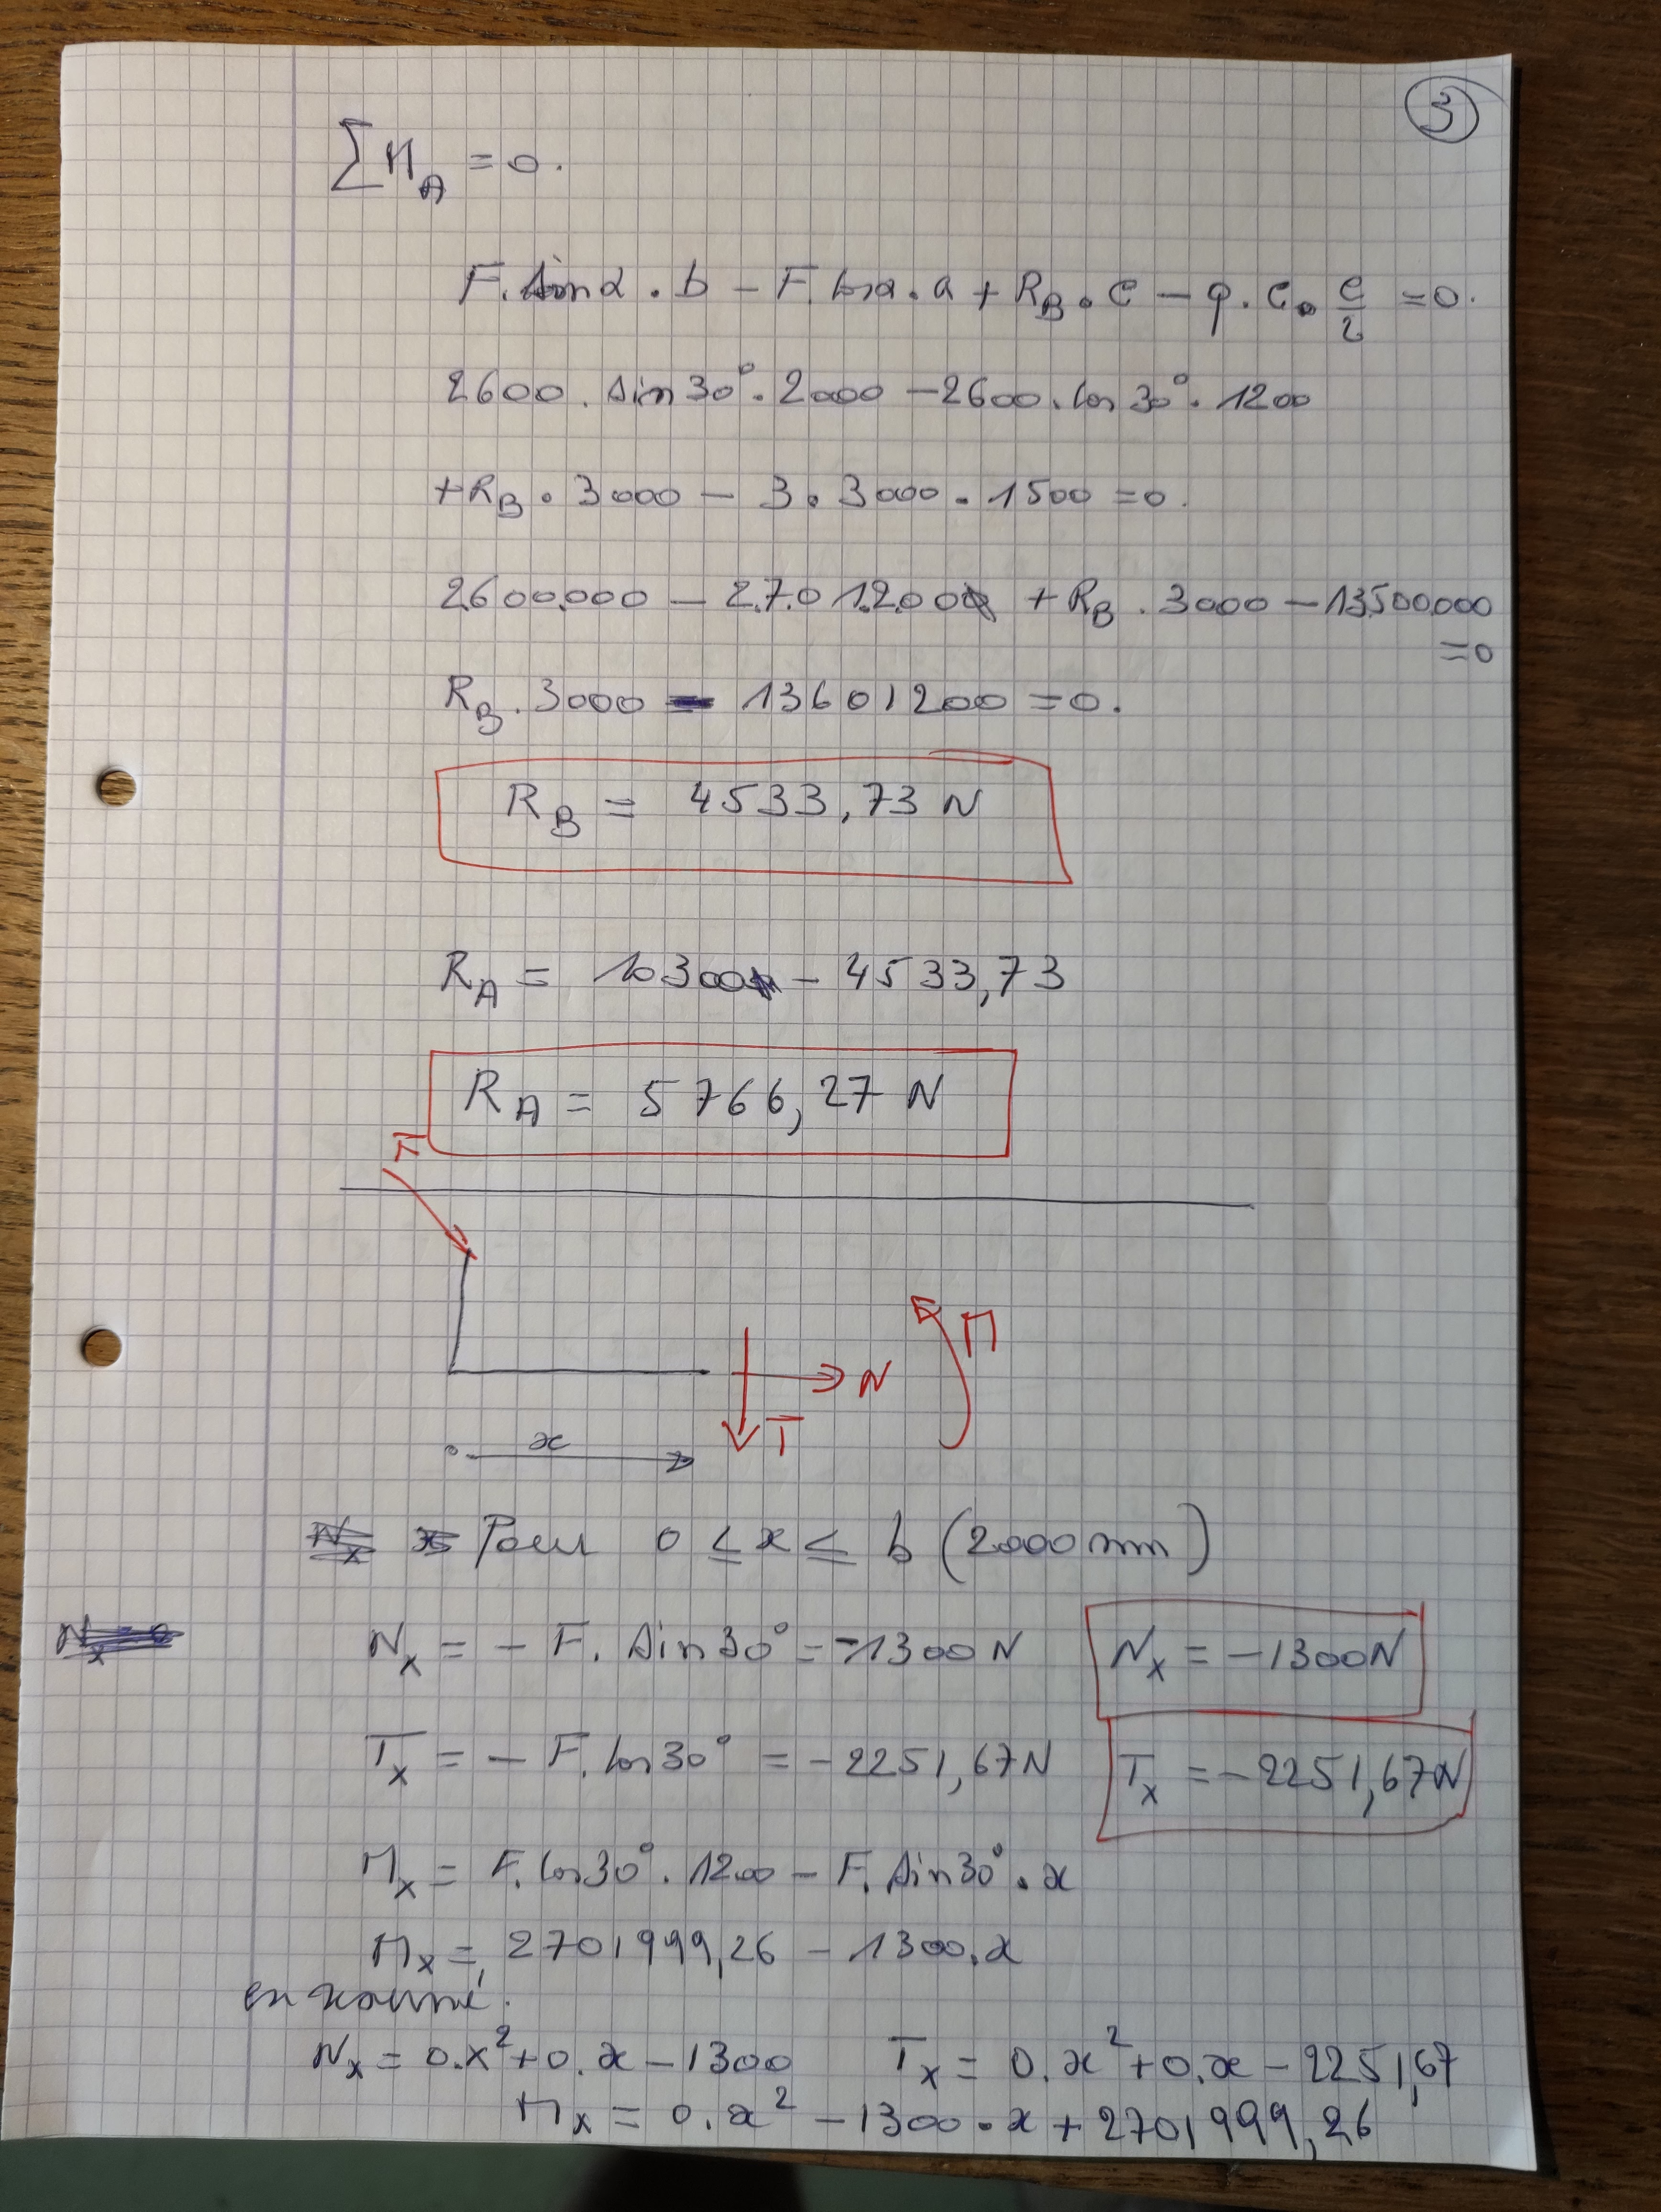 3
∑M_A = 0.
F.sinα . b - F.cosα.a + R_B . c - q.c. c/2 = 0.
2600. sin 30°. 2000 - 2600. cos 30°. 1200
+ R_B . 3000 - 3. 3000. 1500 = 0.
2600.000 - 2.7.01.2.000 + R_B . 3000 - 13.500.000
= 0
R_B . 3000 - 13601200 = 0.
R_B = 4533,73 N
R_A = 10300 - 4533,73
R_A = 5766,27 N
F
M
N
T
x
Pour 0 ≤ x ≤ b (2000 mm)
N_x = - F. sin 30° = -1300 N N_x = -1300N
T_x = - F. cos 30° = -2251,67 N T_x = -2251,67N
M_x = F. cos 30°. 1200 - F. sin 30° . x
M_x = 2701999,26 - 1300.x
en résumé.
N_x = 0.x² + 0.x - 1300 T_x = 0.x² + 0.x - 2251,67
M_x = 0.x² - 1300.x + 2701999,26